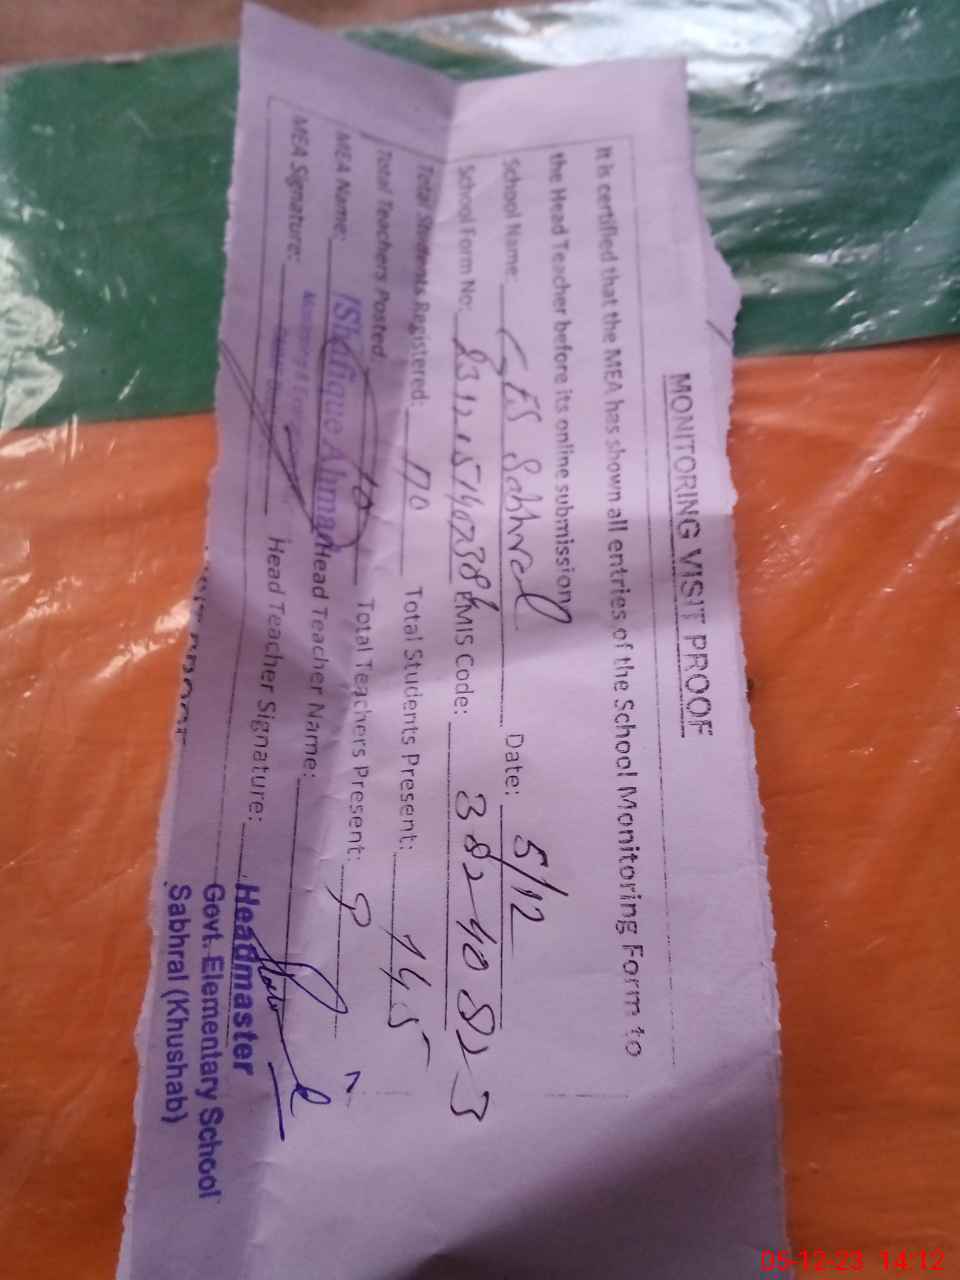 MONITORING VISIT PROOF
It is certified that the MEA has shown all entries of the School Monitoring Form to
the Head Teacher before its online submission
School Name: GES Sabhral Date: 5/12
School Form No: EMIS Code: 38240823
Total Students Registered: 170 Total Students Present: 145
Total Teachers Posted: 10 Total Teachers Present: 9
MEA Name: Ahmad Head Teacher Name:
MEA Signature: Head Teacher Signature:
Headmaster
Govt. Elementary School
Sabhral (Khushab)
05-12-23 14:12